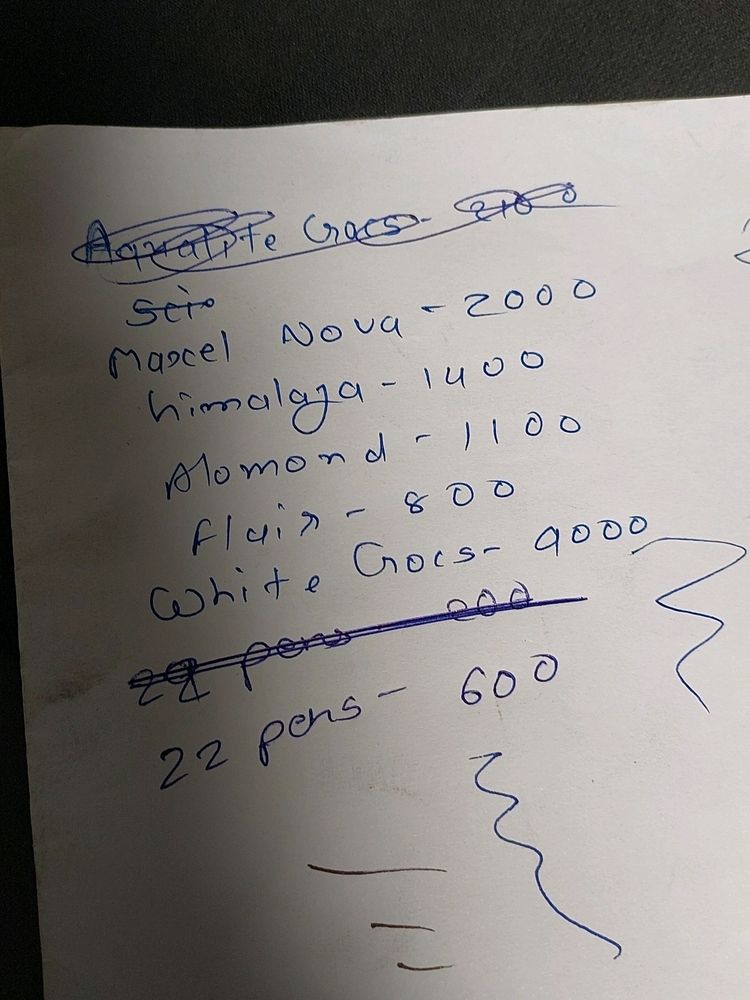 Aqualite Crocs - 2100
Scio
Marcel Nova - 2000
himalaya - 1400
Alomond - 1100
flair - 800
White Crocs - 9000
22 pens 200
22 pens - 600